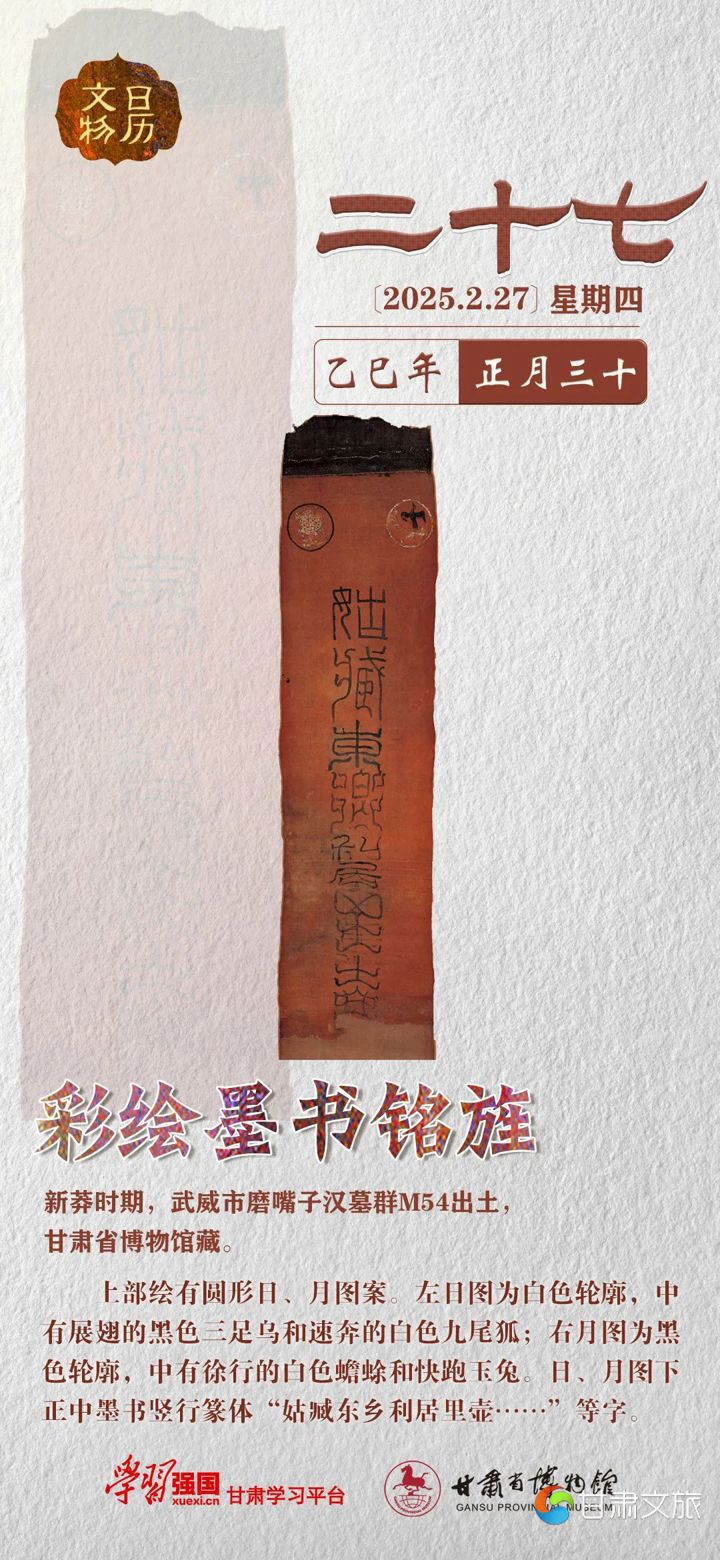 文物
日历
二十七
〔2025.2.27〕星期四
乙巳年 正月三十
彩绘墨书铭旌
新莽时期，武威市磨嘴子汉墓群M54出土，
甘肃省博物馆藏。
上部绘有圆形日、月图案。左日图为白色轮廓，中
有展翅的黑色三足乌和速奔的白色九尾狐；右月图为黑
色轮廓，中有徐行的白色蟾蜍和快跑玉兔。日、月图下
正中墨书竖行篆体“姑臧东乡利居里壶……”等字。
学习强国
xuexi.cn
甘肃学习平台
甘肃省博物馆
GANSU PROVINCIAL MUSEUM
甘肃文旅